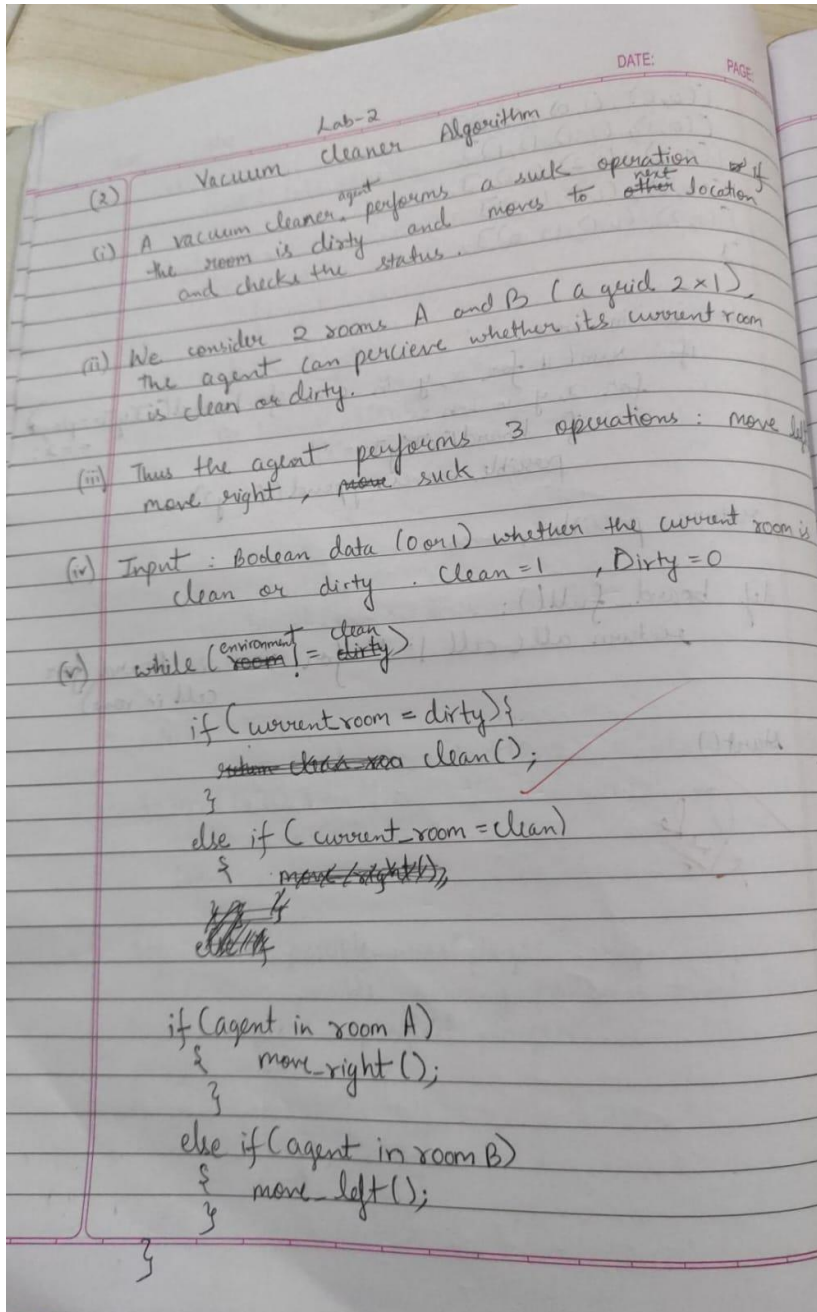 DATE:
PAGE
Lab-2
(2) Vacuum cleaner Algorithm
(i) A vacuum cleaner agent performs a suck operation if
the room is dirty and moves to next location
and checks the status.
(ii) We consider 2 rooms A and B (a grid 2×1),
the agent can percieve whether its current room
is clean or dirty.
(iii) Thus the agent performs 3 operations: move left
move right, suck
(iv) Input: Boolean data (0 or 1) whether the current room is
clean or dirty. Clean = 1, Dirty = 0
(v) while (environment != clean)
if (current room = dirty){
clean();
}
else if (current_room = clean)
{
if (agent in room A)
{ move_right();
}
else if (agent in room B)
{ move_left();
}
}